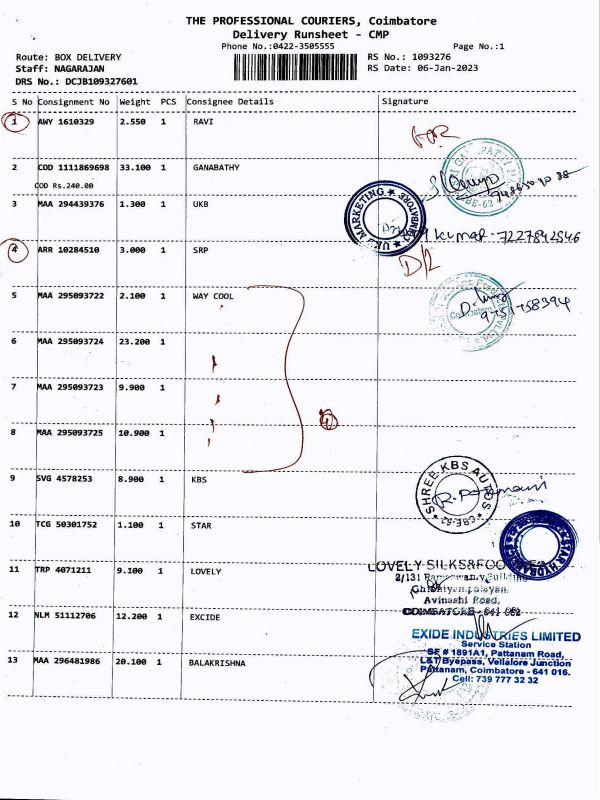 THE PROFESSIONAL COURIERS, Coimbatore
Delivery Runsheet - CMP
Phone No.:0422-3505555 Page No.:1
Route: BOX DELIVERY RS No.: 1093276
Staff: NAGARAJAN RS Date: 06-Jan-2023
DRS No.: DCJB109327601
S No Consignment No Weight PCS Consignee Details Signature
1 AWY 1610329 2.550 1 RAVI
2 COD 1111869698 33.100 1 GANABATHY
COD Rs.240.00
3 MAA 294439376 1.300 1 UKB
UKB MARKETING COIMBATORE
kumar. 7227842546
4 ARR 10284510 3.000 1 SRP
D/L
5 MAA 295093722 2.100 1 WAY COOL
9751758394
6 MAA 295093724 23.200 1
7 MAA 295093723 9.900 1
4
8 MAA 295093725 10.900 1
9 SVG 4578253 8.900 1 KBS
SHREE KBS AUTOS
CBE-62
10 TCG 50301752 1.100 1 STAR
STAR HYDRAULICS
11 TRP 4071211 9.100 1 LOVELY
LOVELY SILKS&
2/131
Avinashi Road,
COIMBATORE - 641 062
12 NLM 51112706 12.200 1 EXCIDE
EXIDE INDUSTRIES LIMITED
Service Station
SF # 1891A1, Pattanam Road,
L&T Byepass, Vellalore Junction
Pattanam, Coimbatore - 641 016.
Cell: 739 777 32 32
13 MAA 296481986 20.100 1 BALAKRISHNA